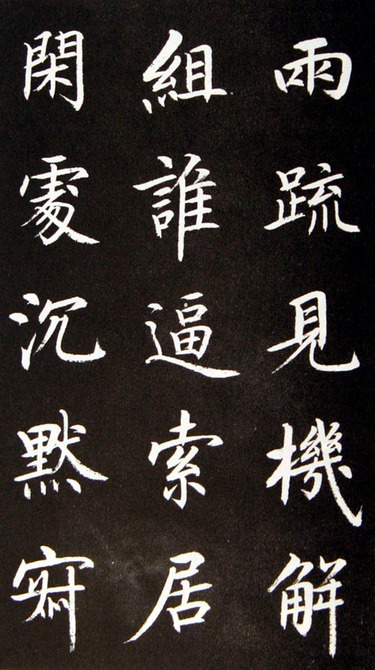 兩疏見機解
組誰逼索居
閑處沉默寂